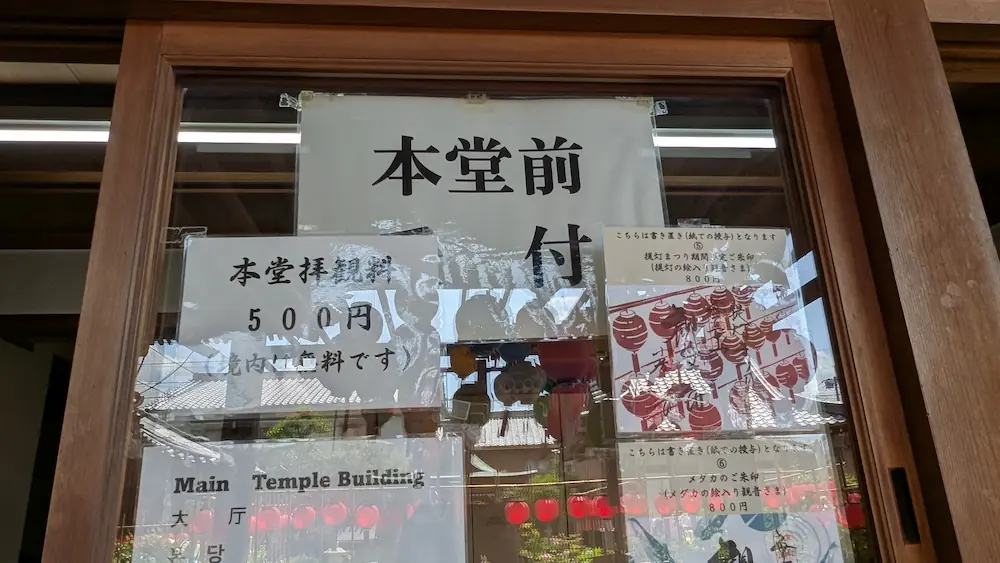 本堂前
付
本堂拝観料
500円
(境内は無料です)
Main Temple Building
大 厅
본 당
こちらは書き置き(紙での授与)となります
⑤
提灯まつり期間限定ご朱印
(提灯の絵入り観音さま)
800円
こちらは書き置き(紙での授与)となります
⑥
メダカのご朱印
(メダカの絵入り観音さま)
800円